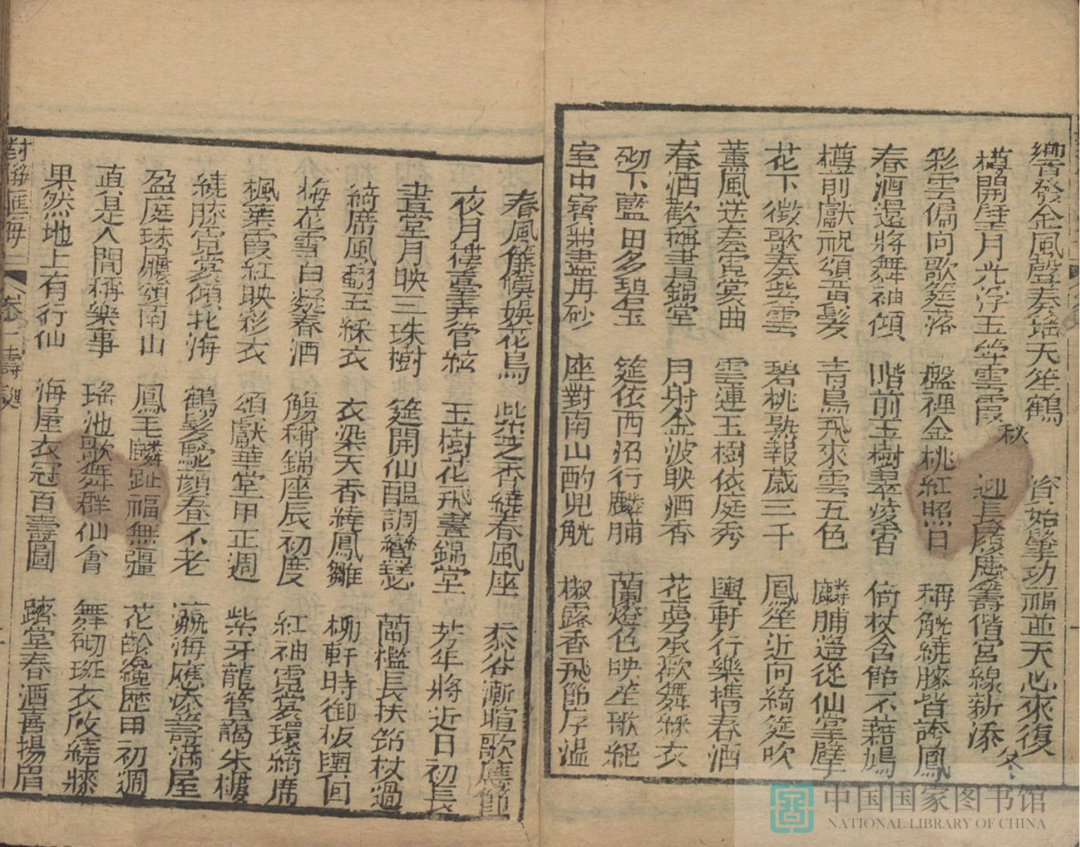 響發金風聲奏瑤天笙鶴
樽開壁月光浮玉笋雲霞秋 迎長慶應籌偕宮線新添冬
彩雲偏向歌筵落 盤裡金桃紅照日 稱觥繞膝皆誇鳳
春酒還將舞袖傾 階前玉樹翠凌霄 倚杖含飴不藉鳩
樽前獻祝頌眉髮 青鳥飛來雲五色 麟脯邉從仙掌擘
花下徴歌奏紫雲 碧桃熟報歲三千 鳳笙近向綺筵吹
薰風送奏霓裳曲 雲連玉樹依庭秀 輿軒行樂携春酒
春酒歡稱晝錦堂 月射金波映酒香 花萼承歡舞綵衣
砌下藍田多碧玉 筵依西沼行麟脯 蘭燈色映笙歌絕
室中寳 座對南山酌兕觥 椒露香飛節序溫
春風僊僕娛花鳥 紫芝香繞春風座 黍谷漸暄歌應節
夜月樓臺弄管絃 玉樹花飛晝錦堂 芳年將近日初長
晝堂月映三珠樹 筵開仙醞調鸞瑟 蘭檻長扶筇杖過
綺席風翻五綵衣 衣染天香繞鳳雛 柳軒時御板輿向
梅花雪白凝春酒 觴稱錦座辰初度 紅袖霓裳環綺席
楓葉霞紅映彩衣 頌獻華堂甲正週 紫牙龍管謁朱樓
繞膝霓裳傾北海 鶴髮駝顔春不老 瀛海應添壽滿屋
盈庭珠履頌南山 鳳毛麟趾福無疆 花齡纔歷甲初週
直是人間稱樂事 瑤池歌舞群仙會 舞砌斑衣欣繞膝
果然地上有行仙 海屋衣冠百壽圖 躋堂春酒舊揚眉
對聯匯海二 卷 壽誕
中国国家图书馆
NATIONAL LIBRARY OF CHINA